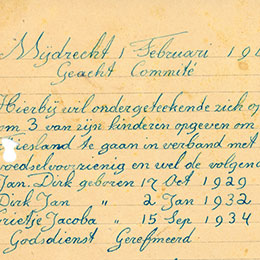 Mijdrecht 1 Februari 19
Geacht Commité
Hierbij wil ondergeteekende zich op
om 3 van zijn kinderen opgeven om
Friesland te gaan in verband met
voedselvoorzienig en wel de volgend
Jan. Dirk geboren 17 Oct 1929
Dirk Jan " 2 Jan 1932
Grietje Jacoba " 15 Sep 1934
Godsdienst Gereffmeerd